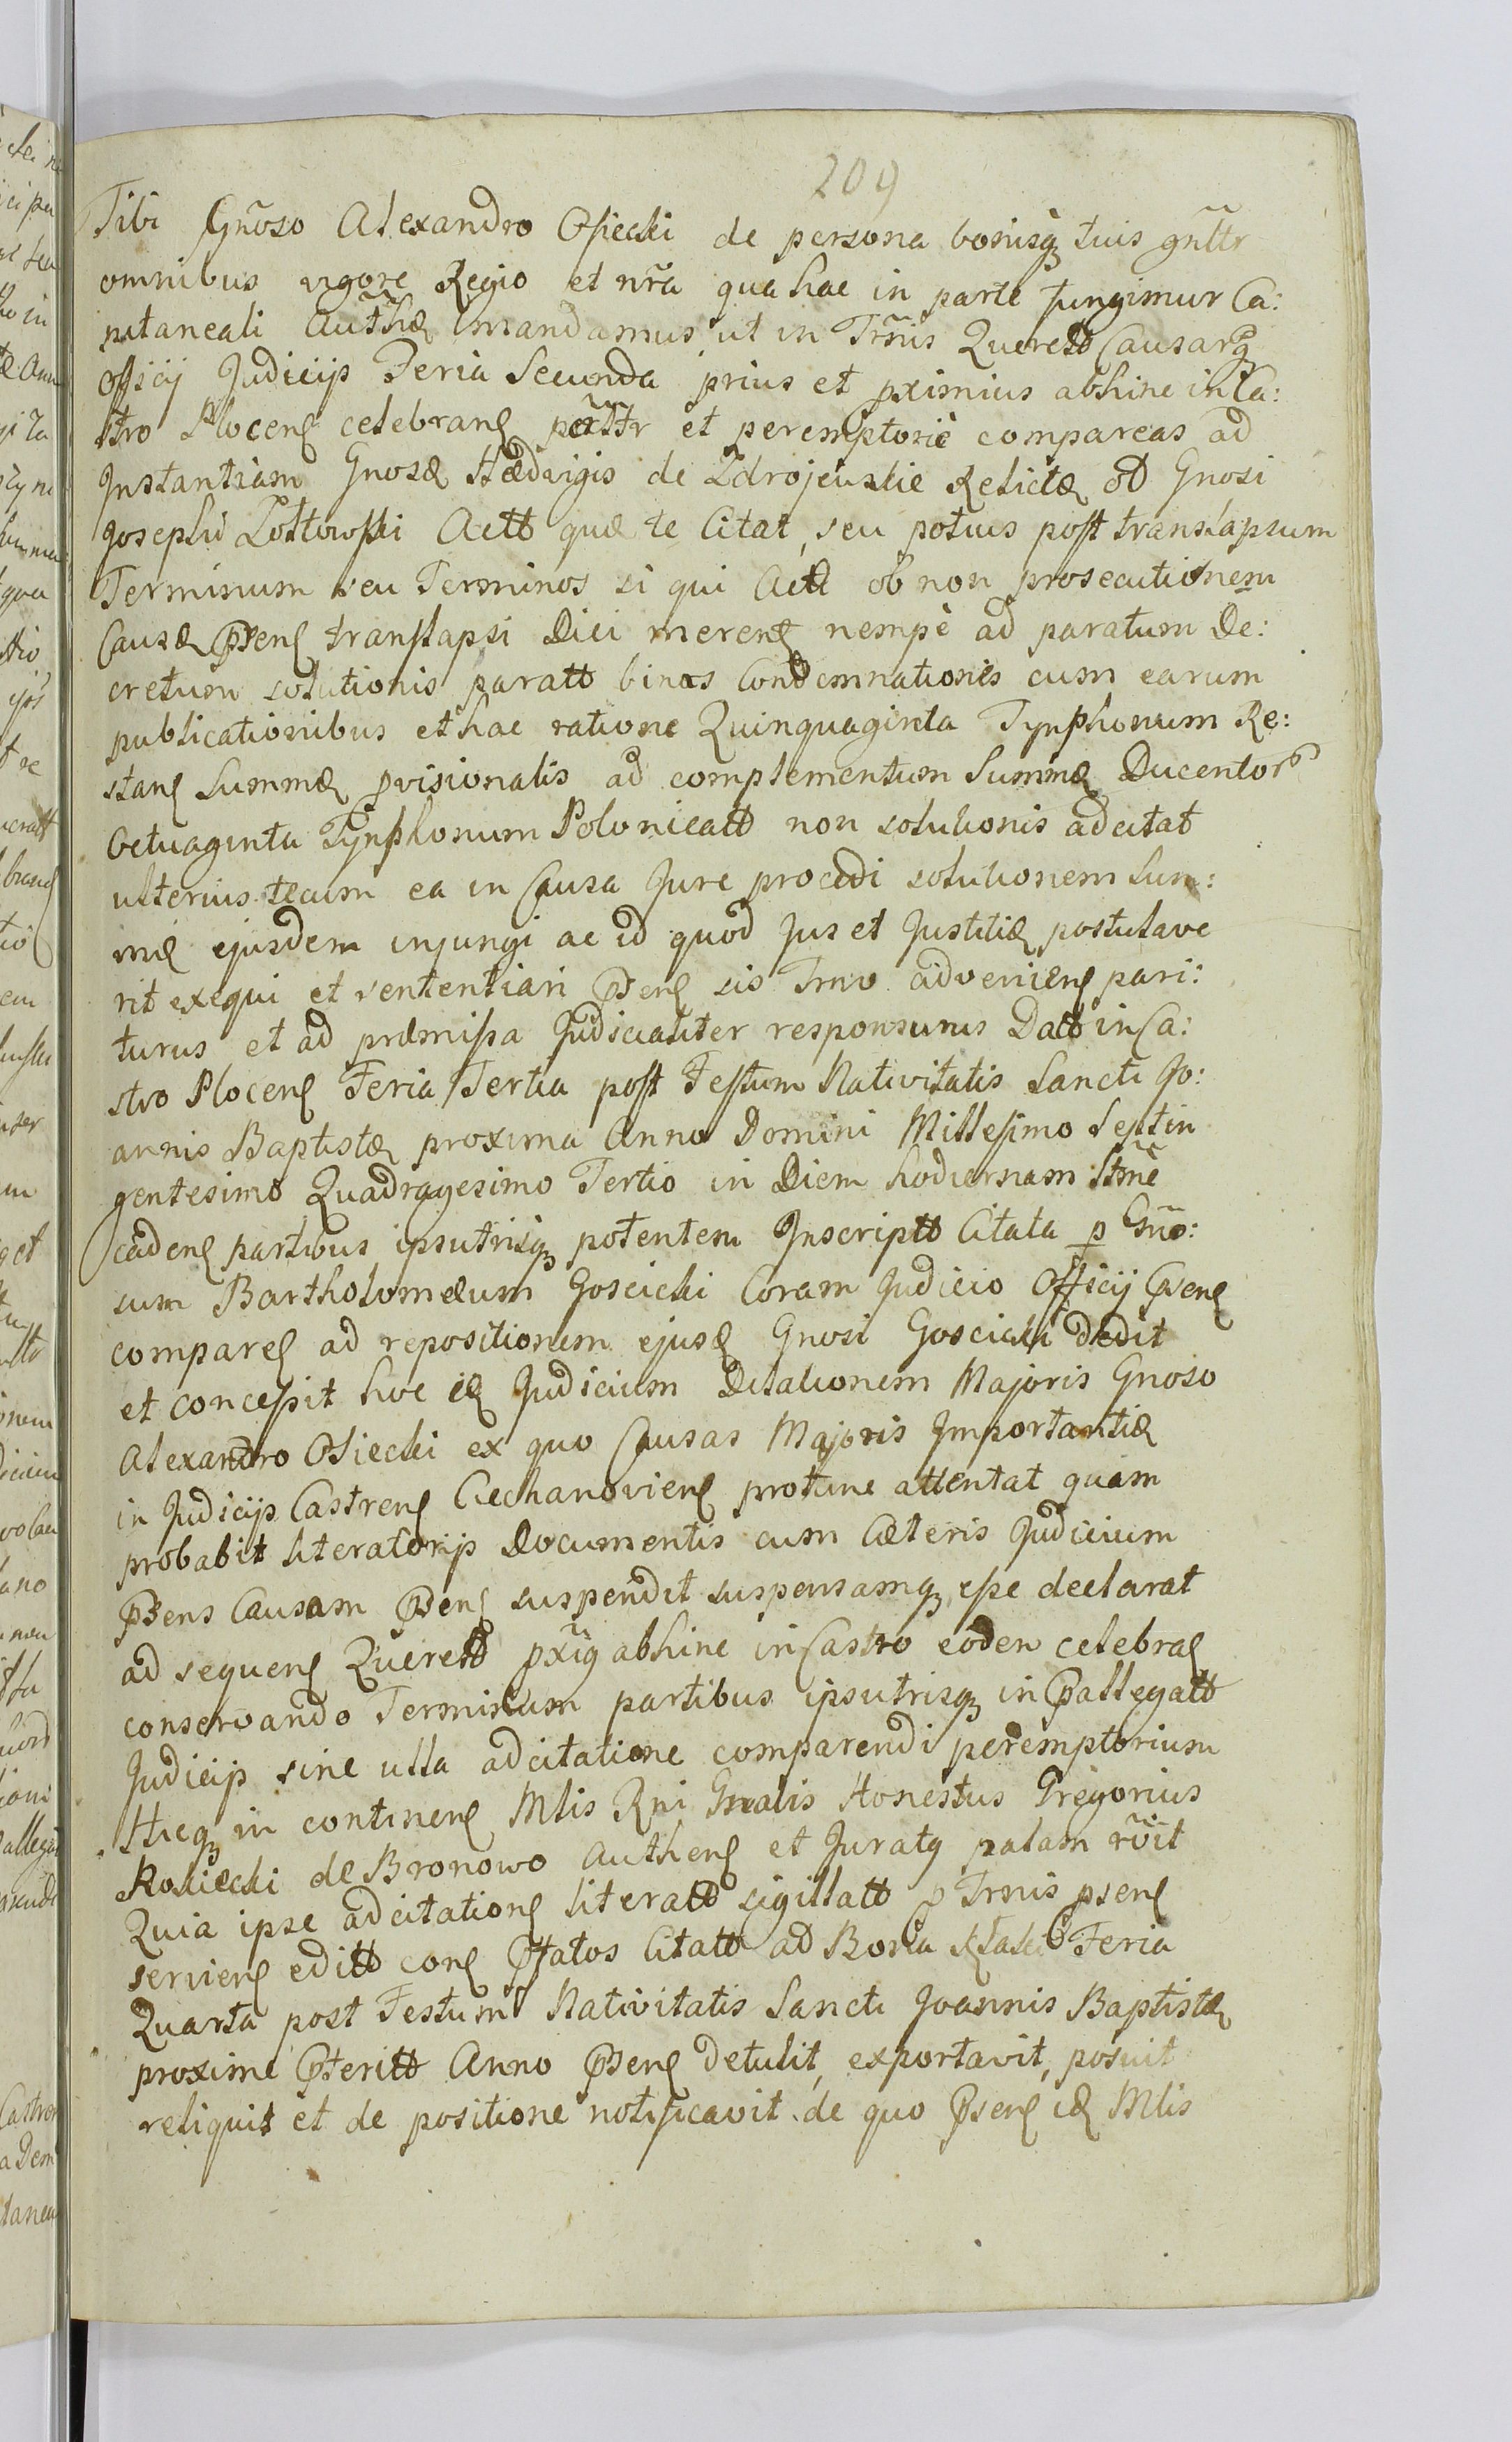 209
Tibi Gnõso Alexandro Osiecki de persona bonisq tuis gnltr
omnibus vigore Regio et nrã qua hac in parte fungimur Ca:
pitaneali Authæ mandamus ut in Trnis Querel Causarq
Officij Judicijs Feria Secunda prius et pximius abhinc in Ca:
stro Plocen celebran perttr et peremptoriè compareas ad
Instantiam Gnosæ Hædvigis de Zdrojewskie Relictæ od Gnosi
Josephi Zoltowski Actt quæ te Citat, seu potius post translapsum
Terminum seu Terminos si qui Actt ob non prosecutionem
Causæ Psen translapsi Dici meren nempè ad paratum De:
cretum solutionis paratt binas Condemnationes cum earum
publicationibus et hac ratione Quinquaginta Tynphonum Re:
stan Summæ pvisionalis ad complementum Summæ Ducentor
Octuaginta Tynphonum Polonicatt non solutionis adcitat
ulterius tecum ea in Causa Jure procedi solutionem Sum:
mæ ejusdem injungi ac id quod Jus et Justitiæ postulave
rit exequi et sententiari Psen sis Trnо advenien pari:
turus et ad præmissa Judicialiter responsurus Datt in Ca:
stro Plocen Feria Tertia post Festum Nativitatis Sancti Jo:
annis Baptistæ proxima Anno Domini Millesimo Septin
gentesimo Quadragesimo Tertio in Diem hodiernam Stmè
caden partibus ipsutrisq potentem Inscriptt Citata p Gnõ:
sum Bartholomæum Goscicki Coram Judicio Officij Psen
compare ad repositionem ejusd Gnosi Goscicki dedit
et concessit hoc id Judicium Dilationem Majoris Gnoso
Alexandro Osiecki ex quo Causas Majoris Importantiæ
in Judicijs Castren Ciechanovien protunc attentat quam
probabit literatorijs Documentis cum Cæteris Judicium
Psens Causam Psen suspendit suspensamq esse declarat
ad sequen Querel pxiq abhinc in Castro eodem celebra
conservando Terminum partibus ipsutrisq in Pallegatt
Judicijs sine ulla adcitatione comparendi peremptorium
Hicq in continen Mlis Rni Gnralis Honestus Gregorius
Rosiecki de Bronowo Authen et Juratq palam rõit
Quia ipse adcitation literatt sigillatt p Trnis psen
servien editt con Ptatos Citatt ad Bona Feria
Quarta post Festum Nativitatis Sancti Joannis Baptistæ
proxime Pteritt Anno Psen detulit, exportavit, posuit
reliquit et de positione notificavit de quo Psen id Mlis